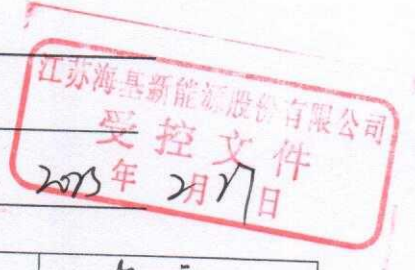 江苏海基新能源股份有限公司
受控文件
2023年 2月27日